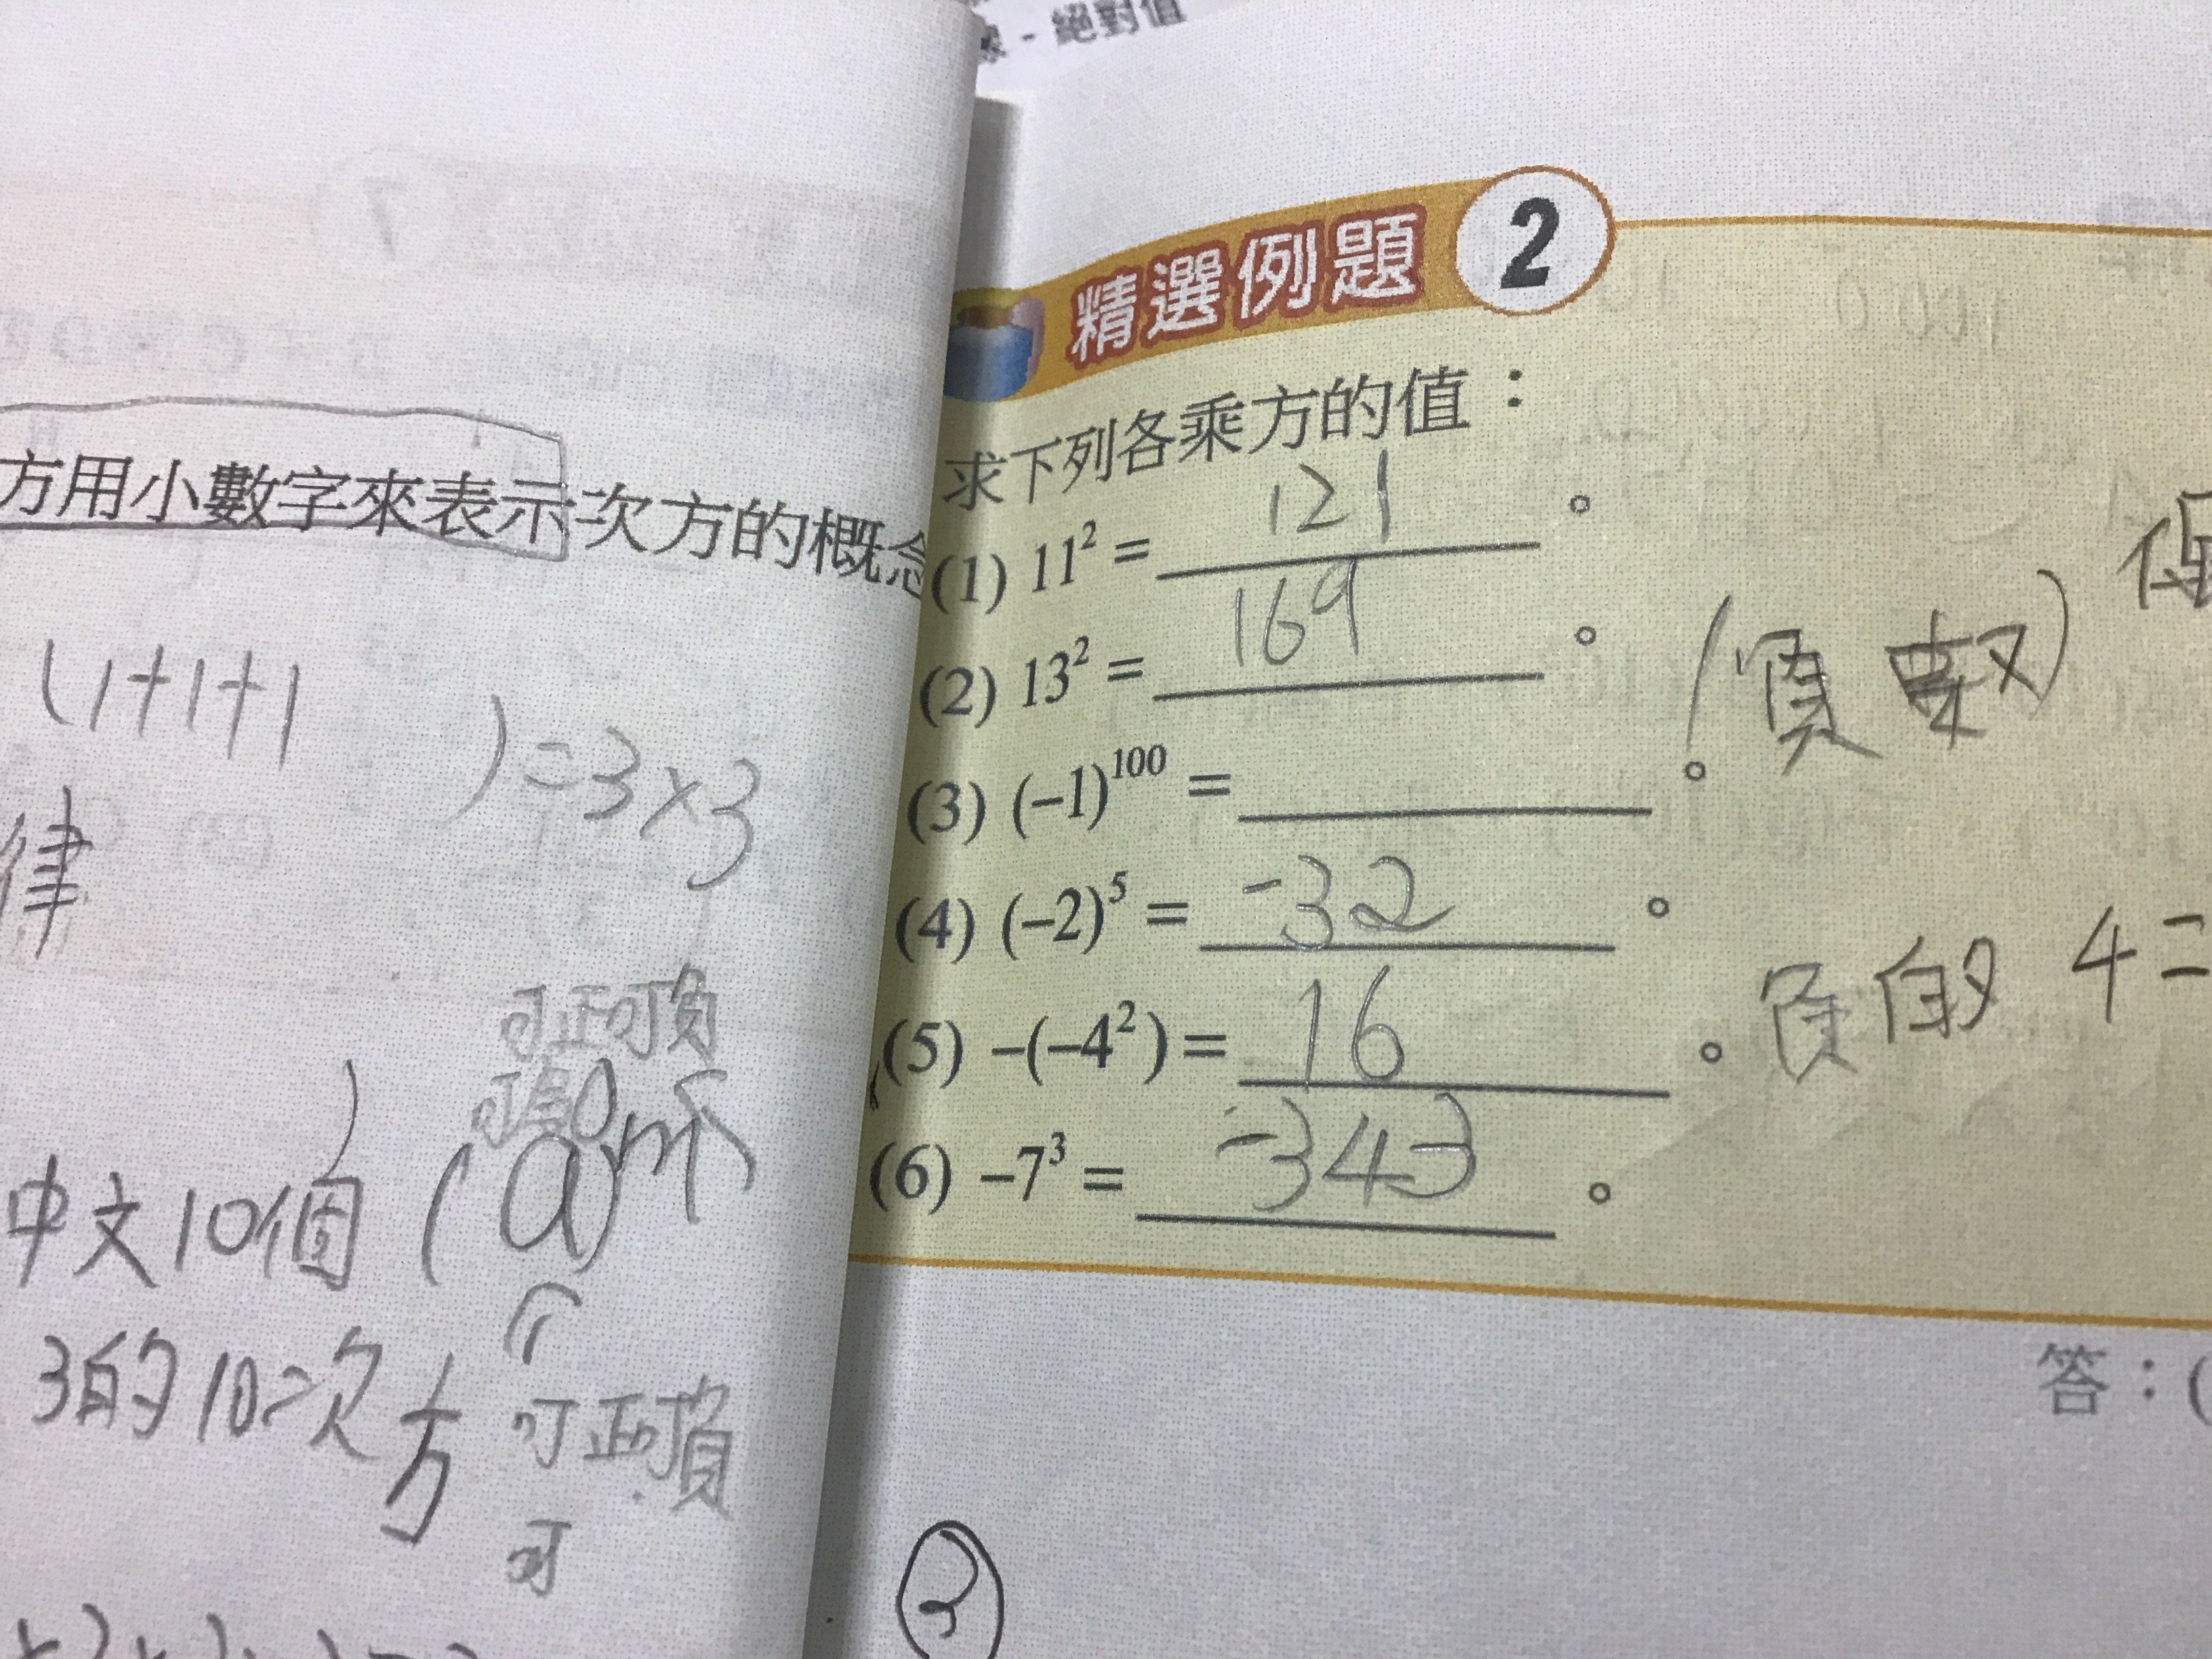 絕對值
精選例題 2
求下列各乘方的值：
(1) 11² = 121 。
(2) 13² = 169 。
(負數)
(3) (–1)¹⁰⁰ = ＿＿＿ 。
(4) (–2)⁵ = -32 。
(5) –(–4²) = 16 。負的 4 =
(6) –7³ = -343 。
答：(
方用小數字來表示次方的概念
(1+1+1 ) = 3×3
律
可正可負
可
(a)m
中文10個
3的10次方
可正可負
可
2